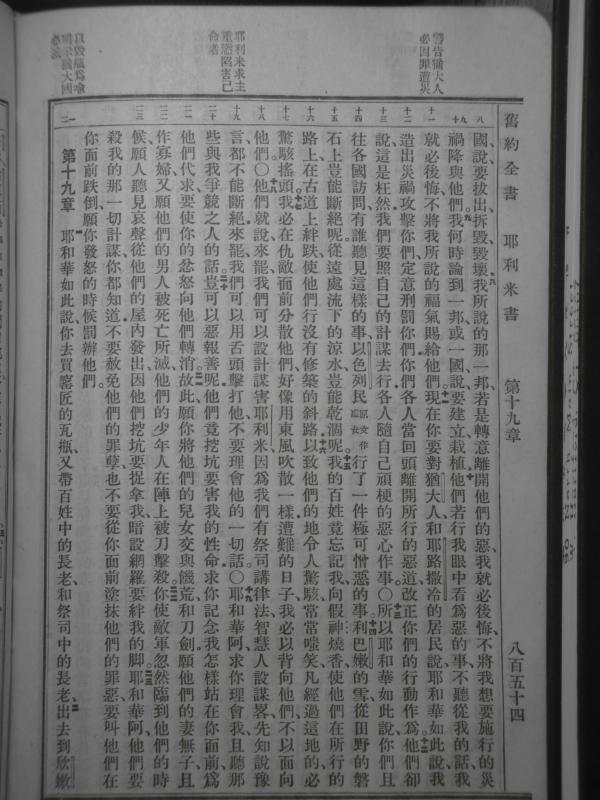 舊約全書　耶利米書　第十九章　八百五十四
警告猶大人
必因罪遭災
耶利米求主
重懲陷害己
命者
八
九十
十一
十二
十三
十四
十五
十六
十七
十八
十九
二十
二一
二二
二三
國說要拔出拆毀毀壞我所說的那一邦若是轉意離開他們的惡我就必後悔不將我想要施行的災
禍降與他們我何時論到一邦或一國說要建立栽植他們若行我眼中看爲惡的事不聽從我的話我
就必後悔不將我所說的福氣賜給他們現在你要對猶大人和耶路撒冷的居民說耶和華如此說我
造出災禍攻擊你們定意刑罰你們你們各人當回頭離開所行的惡道改正你們的行動作爲他們卻
說這是枉然我們要照自己的計謀去行各人隨自己頑梗的惡心作事〇所以耶和華如此說你們且
往各國訪問有誰聽見這樣的事以色列民原文作處女行了一件極可憎惡的事利巴嫩的雪從田野的磐
石上豈能斷絕呢從遠處流下的涼水豈能乾涸呢我的百姓竟忘記我向假神燒香使他們在所行的
路上在古道上絆跌使他們行沒有修築的斜路以致他們的地令人驚駭常常嗤笑凡經過這地的必
驚駭搖頭我必在仇敵面前分散他們好像用東風吹散一樣遭難的日子我必以背向他們不以面向
他們〇他們就說來罷我們可以設計謀害耶利米因爲我們有祭司講律法智慧人設謀畧先知說豫
言都不能斷絕來罷我們可以用舌頭擊打他不要理會他的一切話〇耶和華阿求你理會我且聽那
些與我爭競之人的話豈可以惡報善呢他們竟挖坑要害我的性命求你記念我怎樣站在你面前爲
他們代求要使你的忿怒向他們轉消故此願你將他們的兒女交與饑荒和刀劍願他們的妻無子且
作寡婦又願他們的男人被死亡所滅他們的少年人在陣上被刀擊殺你使敵軍忽然臨到他們的時
候願人聽見哀聲從他們的屋內發出因他們挖坑要捉拿我暗設網羅要絆我的脚耶和華阿他們要
殺我的那一切計謀你都知道不要赦免他們的罪孽也不要從你面前塗抹他們的罪惡要叫他們在
你面前跌倒願你發怒的時候罰辦他們
第十九章　耶和華如此說你去買窰匠的瓦瓶又帶百姓中的長老和祭司中的長老出去到欣嫩